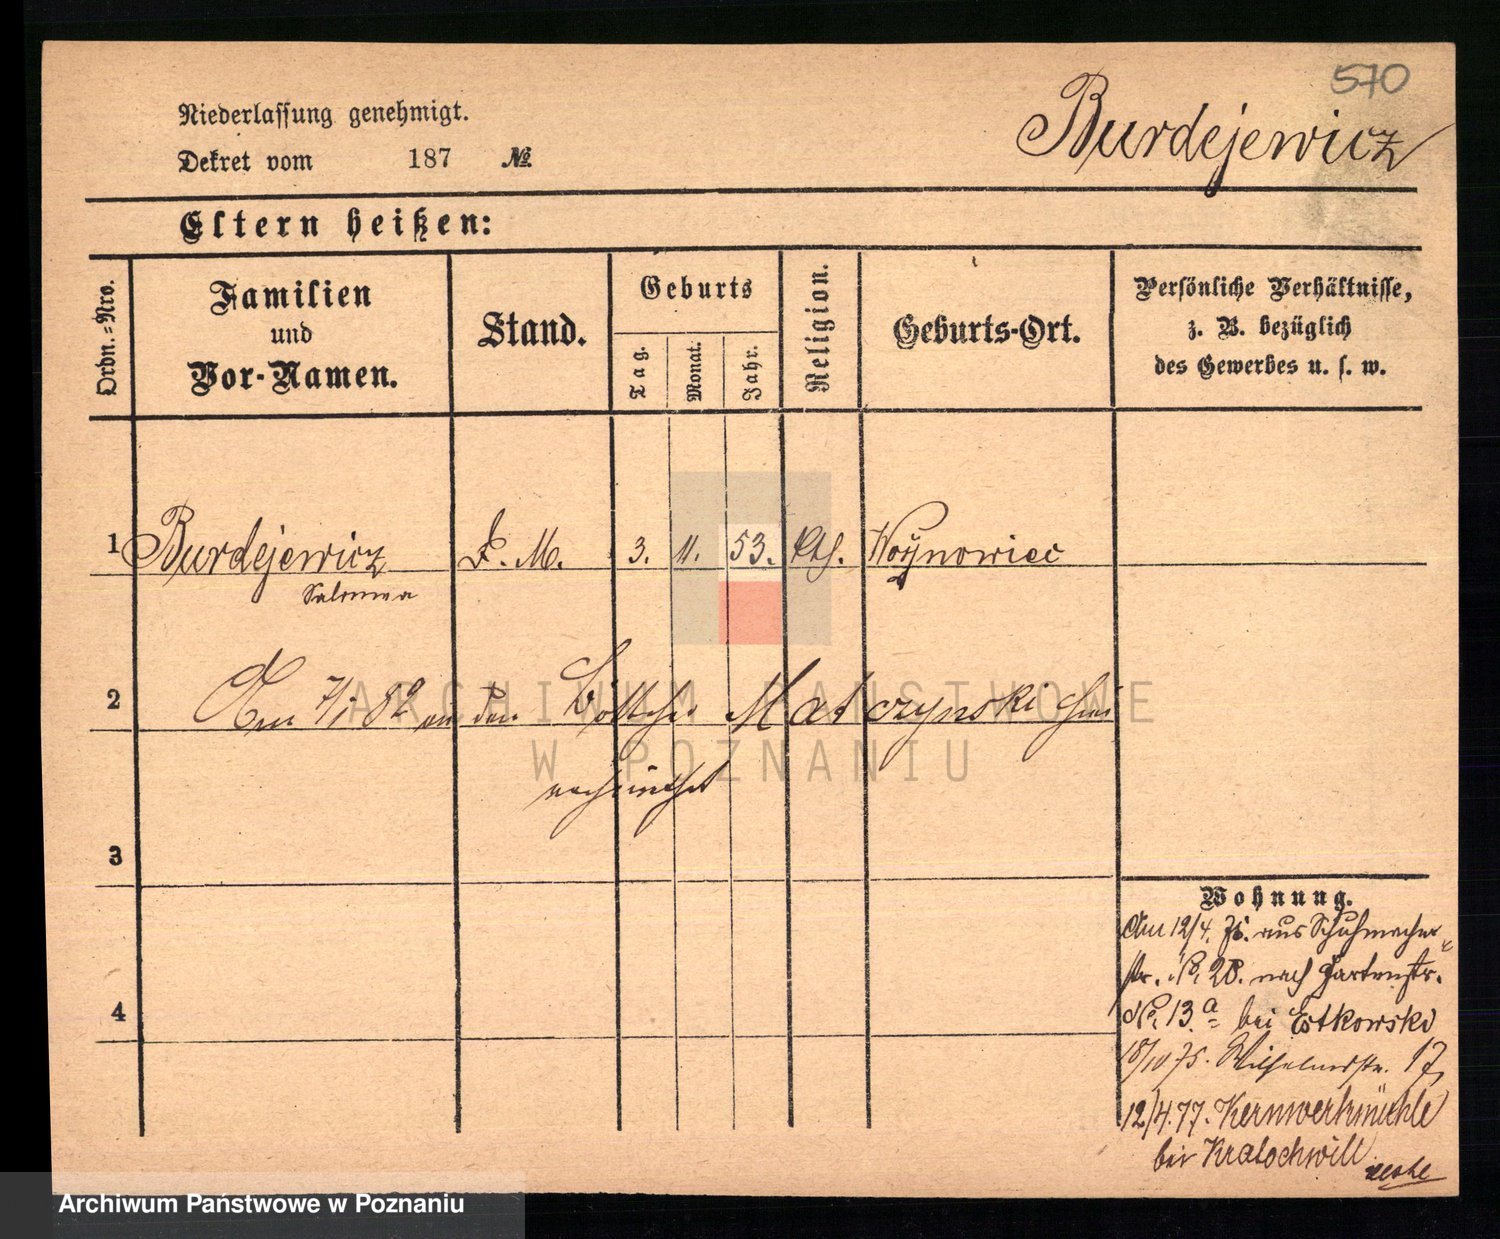 570
Niederlassung genehmigt.
Burdejewicz
Dekret vom 187 №
Eltern heißen:
Ordn.-Nro.
Familien und Vor-Namen.
Stand.
Geburts
Tag.
Monat.
Jahr.
Religion.
Geburts-Ort.
Persönliche Verhältnisse,
z. B. bezüglich
des Gewerbes u. s. w.
1 Burdejewicz D. M. 3. 11. 53. Kth. Woynowiec
Salomea
2 Am 7/1 82 an den Böttcher Matczynski hier
verheirathet
3
4
Wohnung.
Am 12/4. 75. aus Schuhmacher
str. No. 20. nach Gartenstr.
No. 13 a bei Estkowski
18/10 75. Wilhelmstr. 17,
12/4.77. Kernwerkmühle
bei Kratochwill
ARCHIWUM PAŃSTWOWE
W POZNANIU
Archiwum Państwowe w Poznaniu